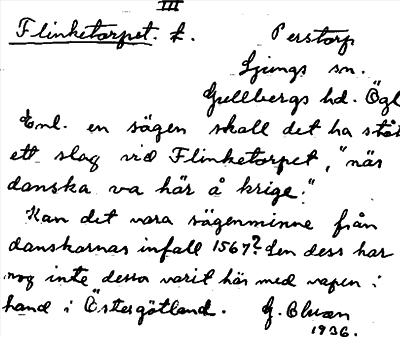 III
Flinketorpet. t. Perstorp
Ljungs sn.
Gullbergs hd. Ögl
Enl. en sägen skall det ha ståt
ett slag vid Flinketorpet, "när
danska va här å krige."
Kan det vara sägenminne från
danskarnas infall 1567? Sen dess har
nog inte dessa varit här med vapen i
hand i Östergötland. G.
1936.